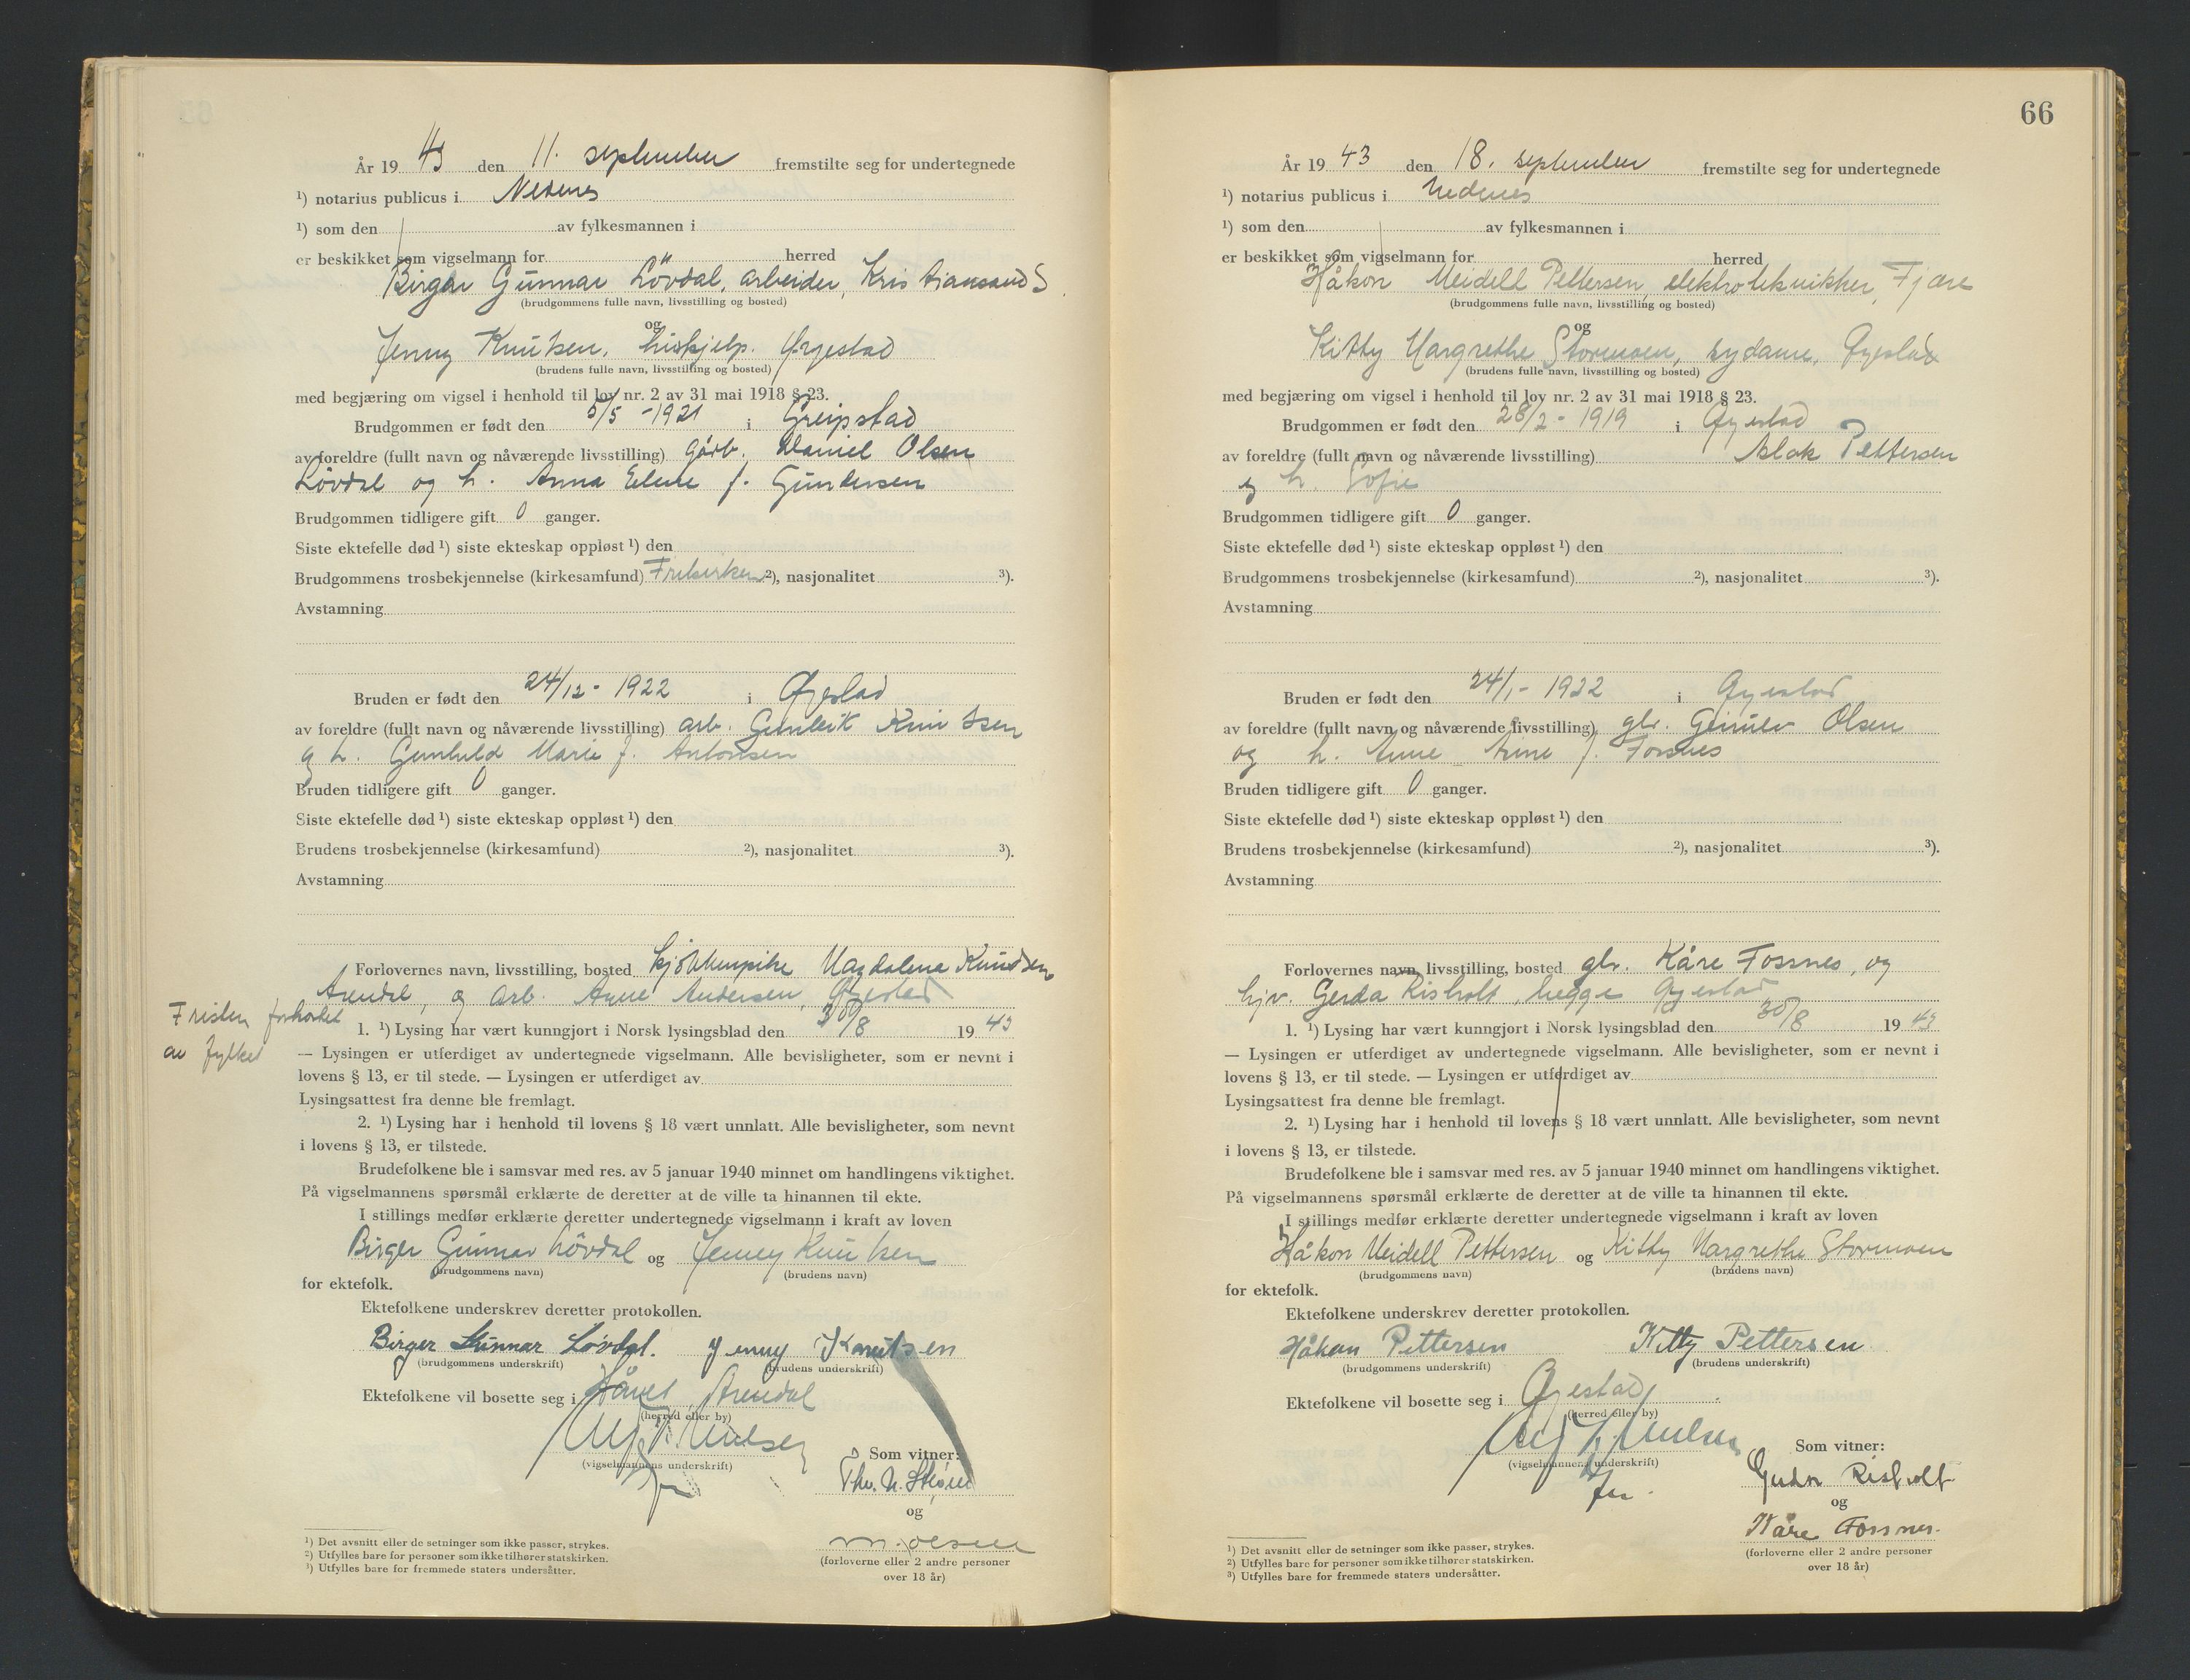 År 19 43 den 11. september fremstilte seg for undertegnede
¹) notarius publicus i Nedenes
¹) som den av fylkesmannen i
er beskikket som vigselmann for herred
Birger Gunnar Lövdal, arbeider, Kristiansand S
(brudgommens fulle navn, livsstilling og bosted)
og
Jenny Knutsen, hushjelp. Øyestad
(brudens fulle navn, livsstilling og bosted)
med begjæring om vigsel i henhold til lov nr. 2 av 31 mai 1918 § 23.
Brudgommen er født den 5/5 - 1921 i Greipstad
av foreldre (fullt navn og nåværende livsstilling) gårb. Daniel Olsen
Lövdal og h. Anna Elene f. Gundersen
Brudgommen tidligere gift 0 ganger.
Siste ektefelle død ¹) siste ekteskap oppløst ¹) den
Brudgommens trosbekjennelse (kirkesamfund) Frikirken ²), nasjonalitet ³).
Avstamning
Bruden er født den 24/12 - 1922 i Øyestad
av foreldre (fullt navn og nåværende livsstilling) arb. Gunleik Knutsen
og h. Gunhild Marie f. Antonsen
Bruden tidligere gift 0 ganger.
Siste ektefelle død ¹) siste ekteskap oppløst ¹) den
Brudens trosbekjennelse (kirkesamfund) ²), nasjonalitet ³).
Avstamning
Forlovernes navn, livsstilling, bosted kjökkenpike Magdalena Knudsen
Arendal, og arb. Arne Andersen, Øyestad
Fristen forkortet
av fylket
1. ¹) Lysing har vært kunngjort i Norsk lysingsblad den 30/8 19 43
— Lysingen er utferdiget av undertegnede vigselmann. Alle bevisligheter, som er nevnt i
lovens § 13, er til stede. — Lysingen er utferdiget av
Lysingsattest fra denne ble fremlagt.
2. ¹) Lysing har i henhold til lovens § 18 vært unnlatt. Alle bevisligheter, som nevnt
i lovens § 13, er tilstede.
Brudefolkene ble i samsvar med res. av 5 januar 1940 minnet om handlingens viktighet.
På vigselmannens spørsmål erklærte de deretter at de ville ta hinannen til ekte.
I stillings medfør erklærte deretter undertegnede vigselmann i kraft av loven
Birger Gunnar Lövdal og Jenny Knutsen
(brudgommens navn) (brudens navn)
for ektefolk.
Ektefolkene underskrev deretter protokollen.
Birger Gunnar Lövdal. Jenny Knutsen
(brudgommens underskrift) (brudens underskrift)
Ektefolkene vil bosette seg i Arendal
(herred eller by)
(vigselmannens underskrift)
Som vitner:
og
(forloverne eller 2 andre personer
over 18 år)
¹) Det avsnitt eller de setninger som ikke passer, strykes.
²) Utfylles bare for personer som ikke tilhører statskirken.
³) Utfylles bare for fremmede staters undersåtter.
66
År 19 43 den 18. september fremstilte seg for undertegnede
¹) notarius publicus i Nedenes
¹) som den av fylkesmannen i
er beskikket som vigselmann for herred
Håkon Meidell Pettersen, elektrotekniker, Fjære
(brudgommens fulle navn, livsstilling og bosted)
og
Kitty Margrethe Stormoen, sydame, Øyestad
(brudens fulle navn, livsstilling og bosted)
med begjæring om vigsel i henhold til lov nr. 2 av 31 mai 1918 § 23.
Brudgommen er født den 28/2 - 1919 i Øyestad
av foreldre (fullt navn og nåværende livsstilling) Aslak Pettersen
og h. Sofie
Brudgommen tidligere gift 0 ganger.
Siste ektefelle død ¹) siste ekteskap oppløst ¹) den
Brudgommens trosbekjennelse (kirkesamfund) ²), nasjonalitet ³).
Avstamning
Bruden er født den 24/1 - 1922 i Øyestad
av foreldre (fullt navn og nåværende livsstilling) gbr. Olsen
og h. Anne f. Fosnes
Bruden tidligere gift 0 ganger.
Siste ektefelle død ¹) siste ekteskap oppløst ¹) den
Brudens trosbekjennelse (kirkesamfund) ²), nasjonalitet ³).
Avstamning
Forlovernes navn, livsstilling, bosted gbr. Kåre Fossnes, og
hjv. Gerda Risholt, begge Øyestad
1. ¹) Lysing har vært kunngjort i Norsk lysingsblad den 30/8 19 43
— Lysingen er utferdiget av undertegnede vigselmann. Alle bevisligheter, som er nevnt i
lovens § 13, er til stede. — Lysingen er utferdiget av
Lysingsattest fra denne ble fremlagt.
2. ¹) Lysing har i henhold til lovens § 18 vært unnlatt. Alle bevisligheter, som nevnt
i lovens § 13, er tilstede.
Brudefolkene ble i samsvar med res. av 5 januar 1940 minnet om handlingens viktighet.
På vigselmannens spørsmål erklærte de deretter at de ville ta hinannen til ekte.
I stillings medfør erklærte deretter undertegnede vigselmann i kraft av loven
Håkon Meidell Pettersen og Kitty Margrethe Stormoen
(brudgommens navn) (brudens navn)
for ektefolk.
Ektefolkene underskrev deretter protokollen.
Håkon Pettersen Kitty Pettersen
(brudgommens underskrift) (brudens underskrift)
Ektefolkene vil bosette seg i Øyestad
(herred eller by)
(vigselmannens underskrift)
Som vitner:
Gerda Risholt
og
Kåre Fossnes.
(forloverne eller 2 andre personer
over 18 år)
¹) Det avsnitt eller de setninger som ikke passer, strykes.
²) Utfylles bare for personer som ikke tilhører statskirken.
³) Utfylles bare for fremmede staters undersåtter.